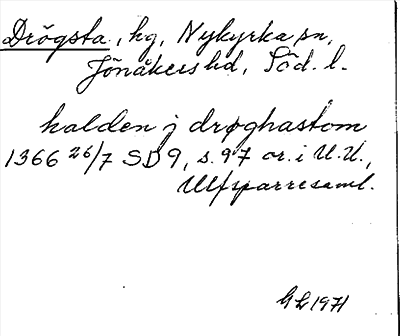 Drögsta, hg, Nykyrka sn,
Jönåkers hd, Söd. l.
halden j drøghastom
1366 26/7 SD 9, s. 97 or. i U.U.,
Ulfsparresaml.
GL 1971